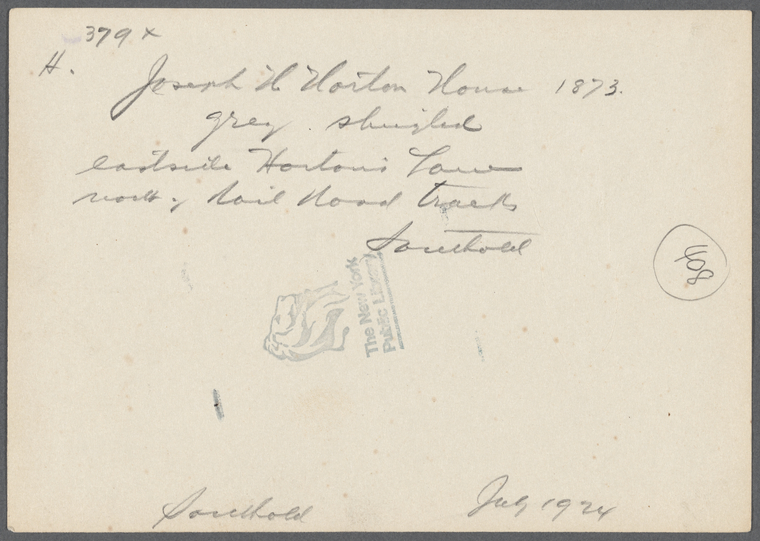 379 x
H.
Joseph H Horton House 1873.
grey shingled
eastside Horton's Lane
north of Rail Road tracks
Southold
408
The New York
Public Library
Southold
July 1924